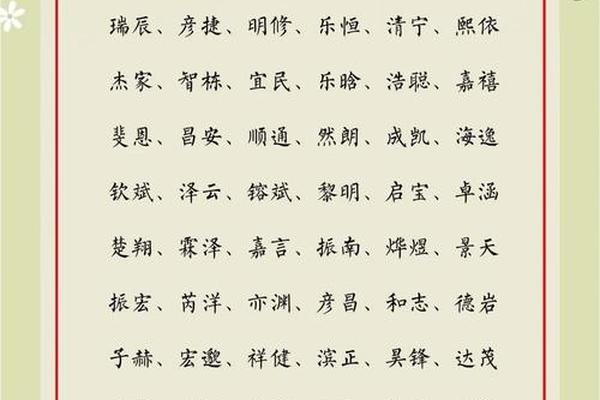 瑞辰、彦捷、明修、乐恒、清宁、熙依
杰家、智栋、宜民、乐晗、浩聪、嘉禧
斐恩、昌安、顺通、然朗、成凯、海逸
钦斌、泽云、镕斌、黎明、启宝、卓涵
楚翔、霖泽、嘉言、振南、烨煜、景天
振宏、芮洋、亦渊、彦昌、和志、德岩
子赫、宏邈、祥健、滨正、昊锋、达茂